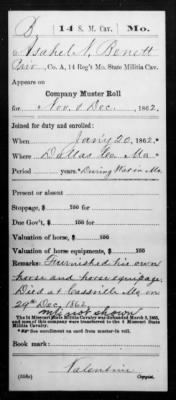 B | 14 S. M. Cav. | Mo.
Isabel S. Bonett
Priv., Co. A, 14 Reg't Mo. State Militia Cav.
Appears on
Company Muster Roll
for Nov. & Dec., 1862.
Joined for duty and enrolled:
When Jany 20, 1862.
Where Dallas Co. Mo
Period years During War in Mo.
Present or absent
Stoppage, $ 100 for
Due Gov't, $ 100 for
Valuation of horse, $ 100
Valuation of horse equipments, $ 100
Remarks: Furnished his own
horse and horse equipage.
Died at Cassville Mo. on
29th Dec. 1862.
m/o not shown
The 14 Missouri State Militia Cavalry was disbanded March 3, 1863,
and men of this company were transferred to the 4 Missouri State
Militia Cavalry.
*See enrollment on card from muster-in roll.
Book mark:
Valentine
(358c) Copyist.